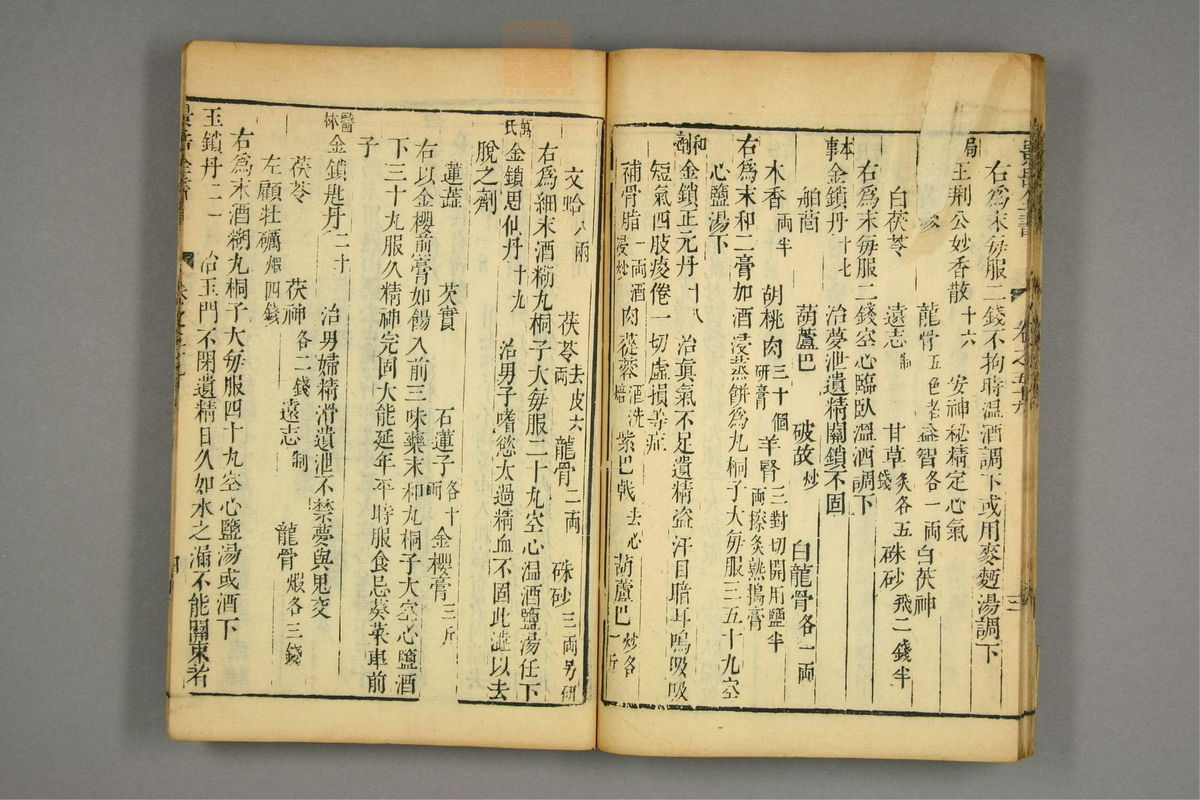 景岳全書 卷之五十九 三
右爲末每服二錢不拘時温酒調下或用麥麵湯調下
局 王荆公妙香散 十六 安神秘精定心氣
龍骨 五色者 益智 各一兩 白茯神
白茯苓 遠志 制 甘草 炙各五錢 硃砂 飛二錢半
右爲末每服二錢空心臨臥溫酒調下
本事 金鎖丹 十七 治夢泄遺精關鎖不固
舶茴 葫蘆巴 破故 炒 白龍骨 各一兩
木香 兩半 胡桃肉 三十個研膏 羊腎 三對切開用鹽半兩擦炙熟搗膏
右爲末和二膏加酒浸蒸餅爲丸桐子大每服三五十丸空
心鹽湯下
和劑 金鎖正元丹 十八 治眞氣不足遺精盗汗目暗耳鳴吸吸
短氣四肢痠倦一切虛損等症
補骨脂 一兩酒浸炒 肉蓯蓉 酒洗焙 紫巴戟 去心 葫蘆巴 炒各一斤
文蛤 八兩 茯苓 去皮六兩 龍骨 二兩 硃砂 三兩另研
右爲細末酒糊丸桐子大每服二十丸空心温酒鹽湯任下
萬氏 金鎖思仙丹 十九 治男子嗜慾太過精血不固此澁以去
脫之劑
蓮蕋 芡實 石蓮子 各十兩 金櫻膏 三斤
右以金櫻煎膏如餳入前三味藥末和丸桐子大空心鹽酒
下三十丸服久精神完固大能延年平時服食忌葵菜車前
子
醫林 金鎖匙丹 二十 治男婦精滑遺泄不禁夢與鬼交
茯苓 茯神 各二錢 遠志 制 龍骨 煆各三錢
左顧牡礪 煆四錢
右爲末酒糊丸桐子大每服四十丸空心鹽湯或酒下
玉鎖丹 二一 治玉門不閉遺精日久如水之漏不能關束者
景岳全書